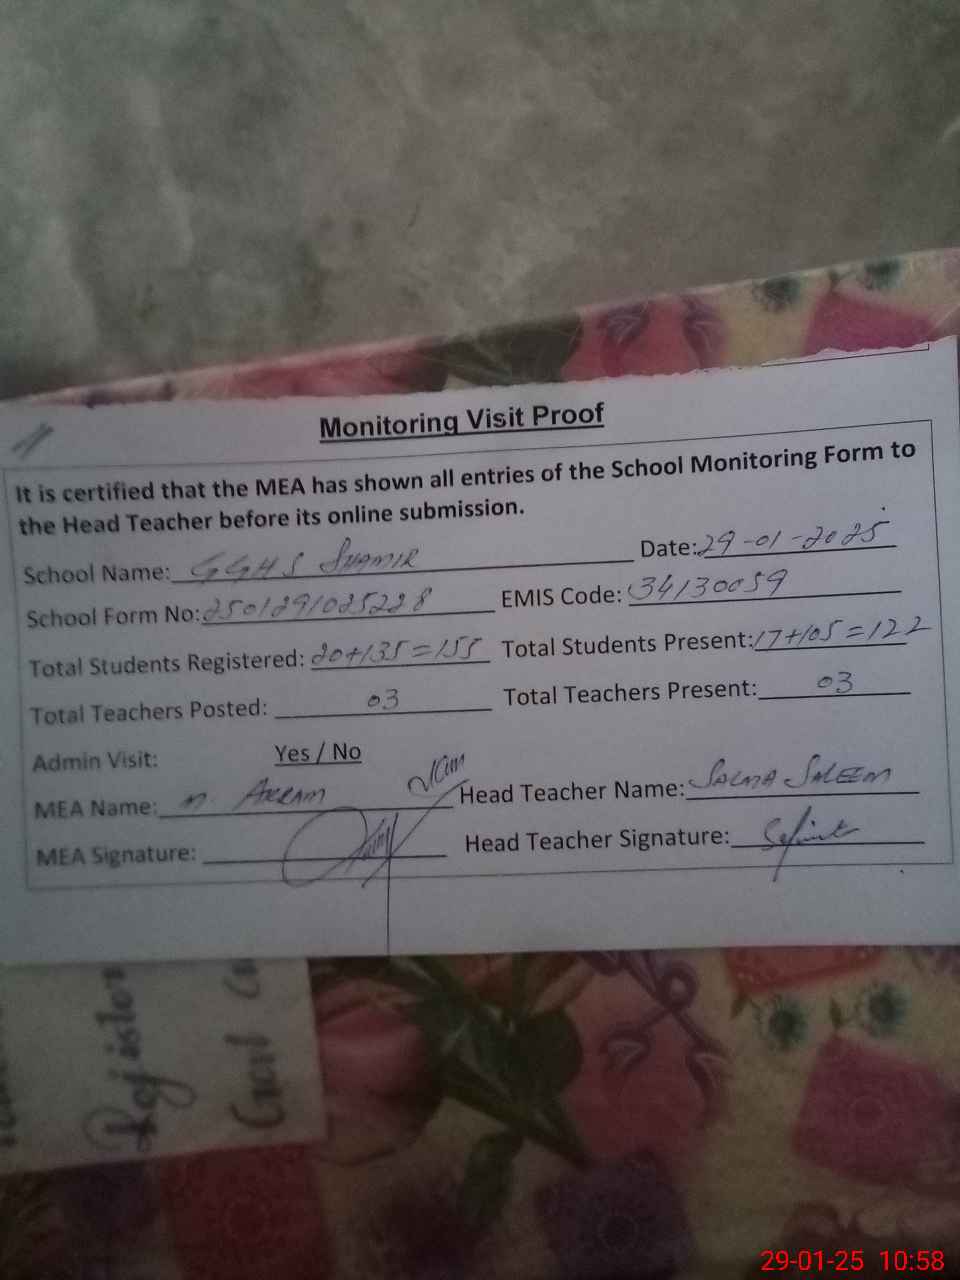 Monitoring Visit Proof
It is certified that the MEA has shown all entries of the School Monitoring Form to
the Head Teacher before its online submission.
School Name: GGHS SHAMIR Date: 29-01-2025
School Form No: 2501291025228 EMIS Code: 34130059
Total Students Registered: 20+135=155 Total Students Present: 17+105=122
Total Teachers Posted: 03 Total Teachers Present: 03
Admin Visit: Yes / No
MEA Name: M. AKRAM Head Teacher Name: SALMA SALEEM
MEA Signature: Head Teacher Signature:
Register
29-01-25 10:58